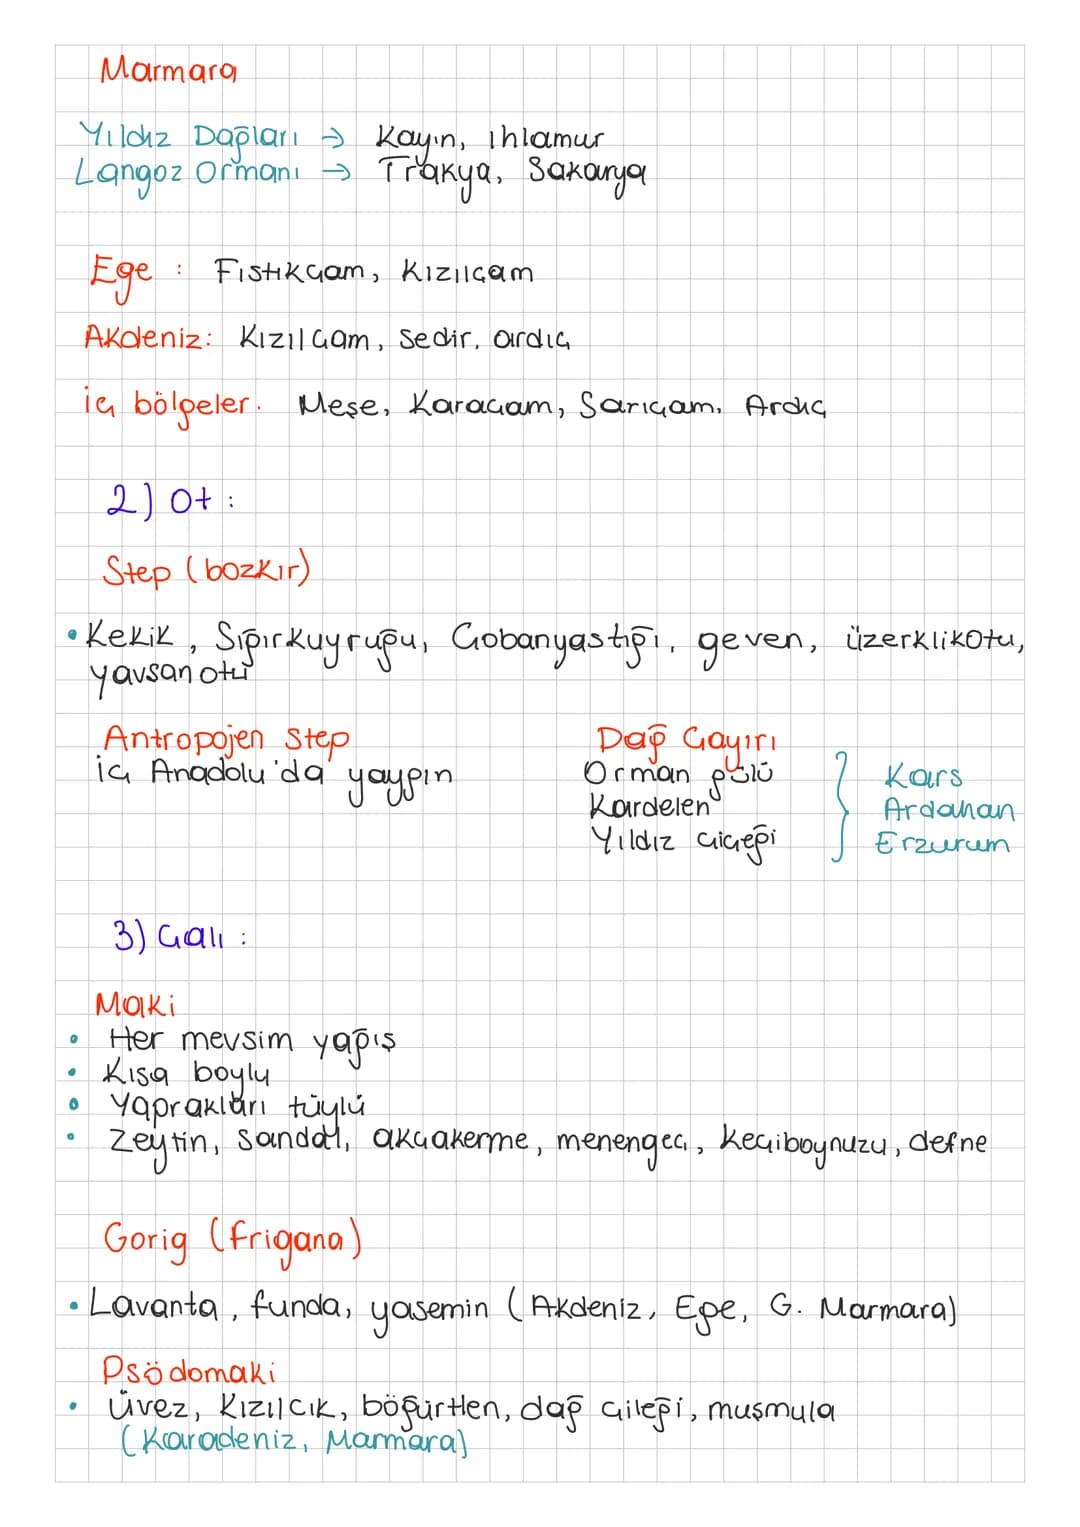 Marmara
Yıldız Dağları → Kayın, ıhlamur
Langoz Ormanı → Trakya, Sakarya
Ege : Fıstıkçam, Kızılçam
Akdeniz: Kızılçam, Sedir, ardıç
iç bölgeler. Meşe, Karaçam, Sarıçam, Ardıç
2) Ot :
Step (bozkır)
• Kekik, Sığırkuyruğu, Çobanyastığı, geven, üzerklikotu,
yavsan otu
Antropojen step
iç Anadolu'da yaygın
Dağ Çayırı
Orman gülü
Kardelen
Yıldız çiçeği
Kars
Ardahan
Erzurum
3) Çalı :
Maki
• Her mevsim yağış
• Kısa boylu
• Yaprakları tüylü
• Zeytin, sandal, akçakerme, menengeç, keçiboynuzu, defne
Gorig (frigana)
• Lavanta, funda, yasemin (Akdeniz, Ege, G. Marmara)
Psödomaki
• Üvez, Kızılcık, böğürtlen, dağ çileği, muşmula
(Karadeniz, Marmara)